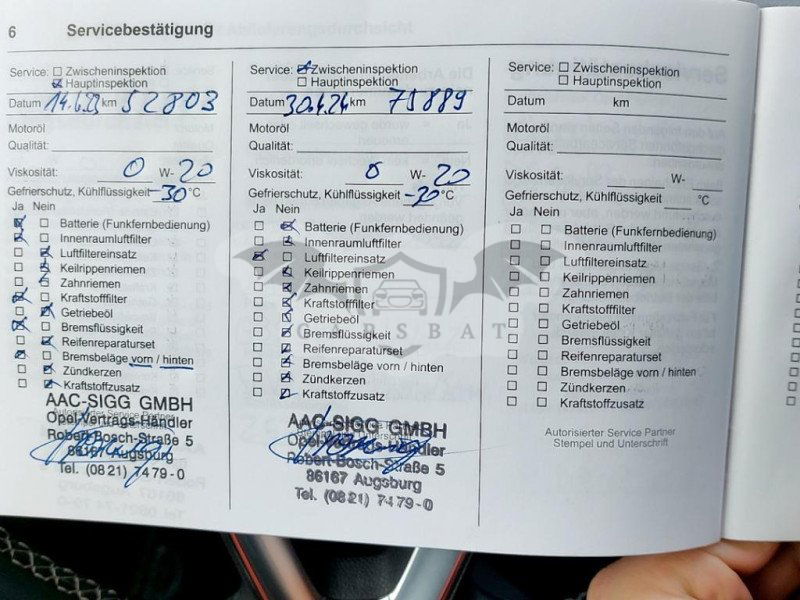 6 Servicebestätigung
Service: ☐ Zwischeninspektion
☒ Hauptinspektion
Datum 14.6.23 km 52803
Motoröl
Qualität:
Viskosität: 0 W- 20
Gefrierschutz, Kühlflüssigkeit -30 °C
Ja Nein
☒ ☐ Batterie (Funkfernbedienung)
☒ ☐ Innenraumluftfilter
☐ ☒ Luftfiltereinsatz
☐ ☒ Keilrippenriemen
☐ ☒ Zahnriemen
☒ ☐ Kraftstofffilter
☐ ☒ Getriebeöl
☒ ☐ Bremsflüssigkeit
☐ ☒ Reifenreparaturset
☒ ☐ Bremsbeläge vorn / hinten
☐ ☒ Zündkerzen
☐ ☒ Kraftstoffzusatz
AAC-SIGG GMBH
Autorisierter Service Partner
Opel-Vertrags-Händler
Robert-Bosch-Straße 5
86167 Augsburg
Tel. (08 21) 74 79 - 0
Service: ☒ Zwischeninspektion
☐ Hauptinspektion
Datum 30.4.24 km 75889
Motoröl
Qualität:
Viskosität: 0 W- 20
Gefrierschutz, Kühlflüssigkeit -30 °C
Ja Nein
☐ ☒ Batterie (Funkfernbedienung)
☐ ☒ Innenraumluftfilter
☒ ☐ Luftfiltereinsatz
☐ ☒ Keilrippenriemen
☐ ☒ Zahnriemen
☐ ☒ Kraftstofffilter
☐ ☒ Getriebeöl
☐ ☒ Bremsflüssigkeit
☐ ☒ Reifenreparaturset
☐ ☒ Bremsbeläge vorn / hinten
☐ ☒ Zündkerzen
☐ ☒ Kraftstoffzusatz
AAC-SIGG GMBH
Opel-Vertrags-Händler
Robert-Bosch-Straße 5
86167 Augsburg
Tel. (08 21) 74 79 - 0
Service: ☐ Zwischeninspektion
☐ Hauptinspektion
Datum km
Motoröl
Qualität:
Viskosität: W-
Gefrierschutz, Kühlflüssigkeit °C
Ja Nein
☐ ☐ Batterie (Funkfernbedienung)
☐ ☐ Innenraumluftfilter
☐ ☐ Luftfiltereinsatz
☐ ☐ Keilrippenriemen
☐ ☐ Zahnriemen
☐ ☐ Kraftstofffilter
☐ ☐ Getriebeöl
☐ ☐ Bremsflüssigkeit
☐ ☐ Reifenreparaturset
☐ ☐ Bremsbeläge vorn / hinten
☐ ☐ Zündkerzen
☐ ☐ Kraftstoffzusatz
Autorisierter Service Partner
Stempel und Unterschrift
CARSBAT